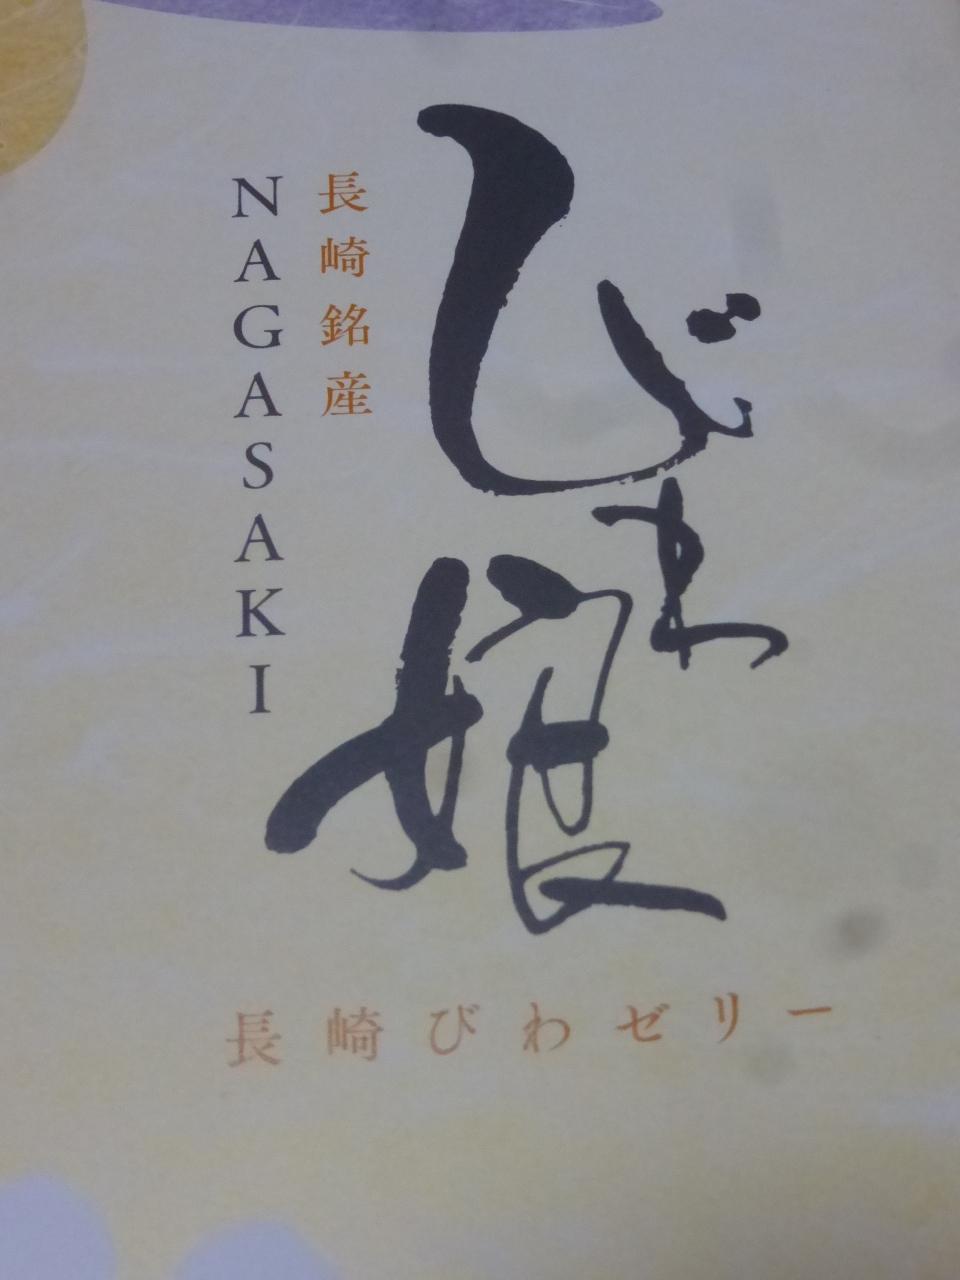 びわ娘
長崎銘産
NAGASAKI
長崎びわゼリー